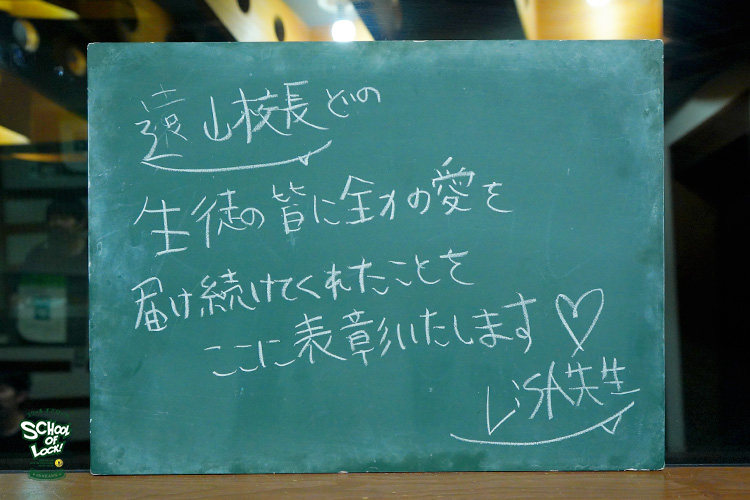 遠山校長どの
生徒の皆に全力の愛を
届け続けてくれたことを
ここに表彰いたします♡
LiSA先生
SCHOOL
OF
LOCK!